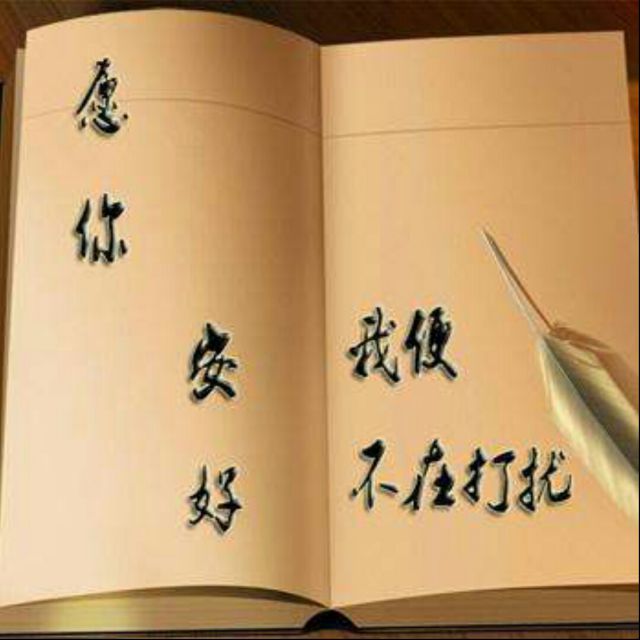 愿你
安好
我便
不在打扰